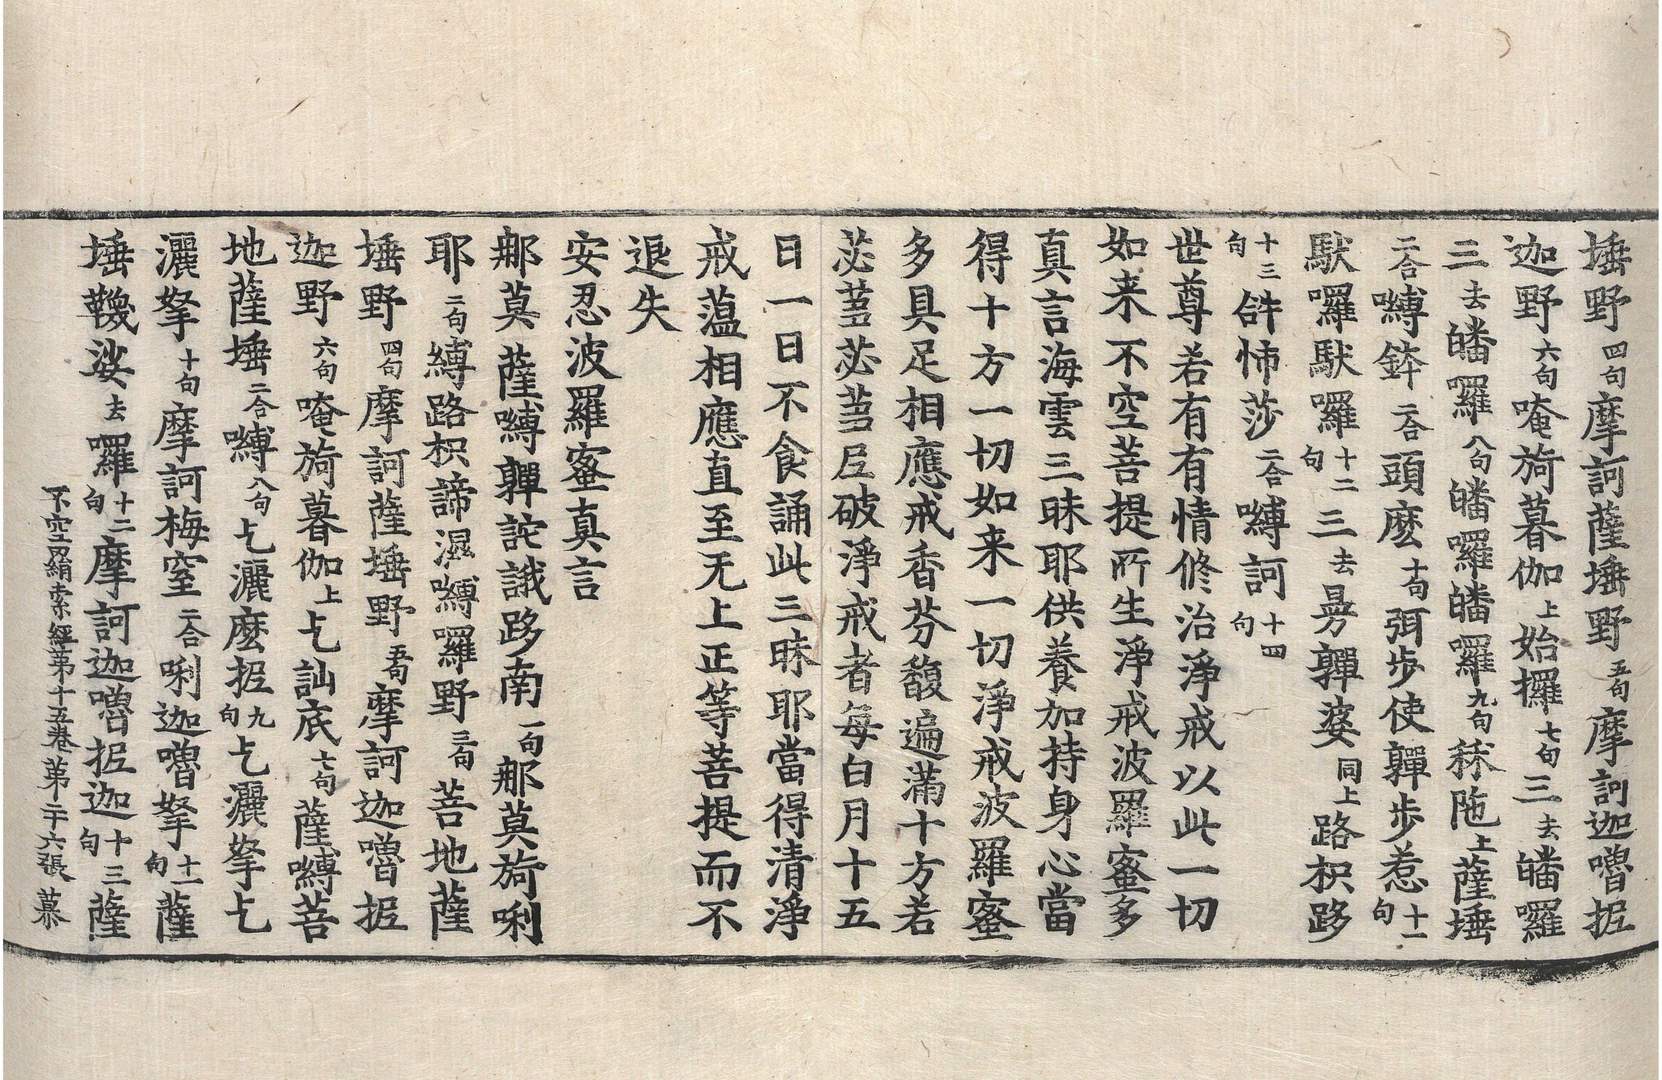 埵野四句摩訶薩埵野五句摩訶迦嚕抳
迦野六句唵旖暮伽上始攞七句三去皤囉
三去皤囉八句皤囉皤囉九句秝陁上薩埵
二合嚩鉢二合頭麽十句弭步使嚲步惹十一句
馱囉馱囉十二句三去曼嚲婆同上路枳跢
十三句𤙖怖莎二合嚩訶十四句
世尊若有有情修治淨戒以此一切
如来不空菩提所生淨戒波羅蜜多
真言海雲三昧耶供養加持身心當
得十方一切如来一切淨戒波羅蜜
多具足相應戒香芬馥遍滿十方若
苾蒭苾蒭尼破淨戒者每白月十五
日一日不食誦此三昧耶當得清淨
戒蕰相應直至无上正等菩提而不
退失
安忍波羅蜜真言
那莫薩嚩嚲詑誐跢南一句那莫旖唎
耶二句嚩路枳諦濕嚩囉野三句菩地薩
埵野四句摩訶薩埵野五句摩訶迦嚕抳
迦野六句唵旖暮伽上乞訕底七句薩嚩菩
地薩埵二合嚩八句乞灑麽抳九句乞灑拏乞
灑拏十句摩訶梅窒二合唎迦嚕拏十一句薩
埵韈娑去囉十二句摩訶迦嚕抳迦十三句薩
不空羂索經第十五卷 第二十六張 慕